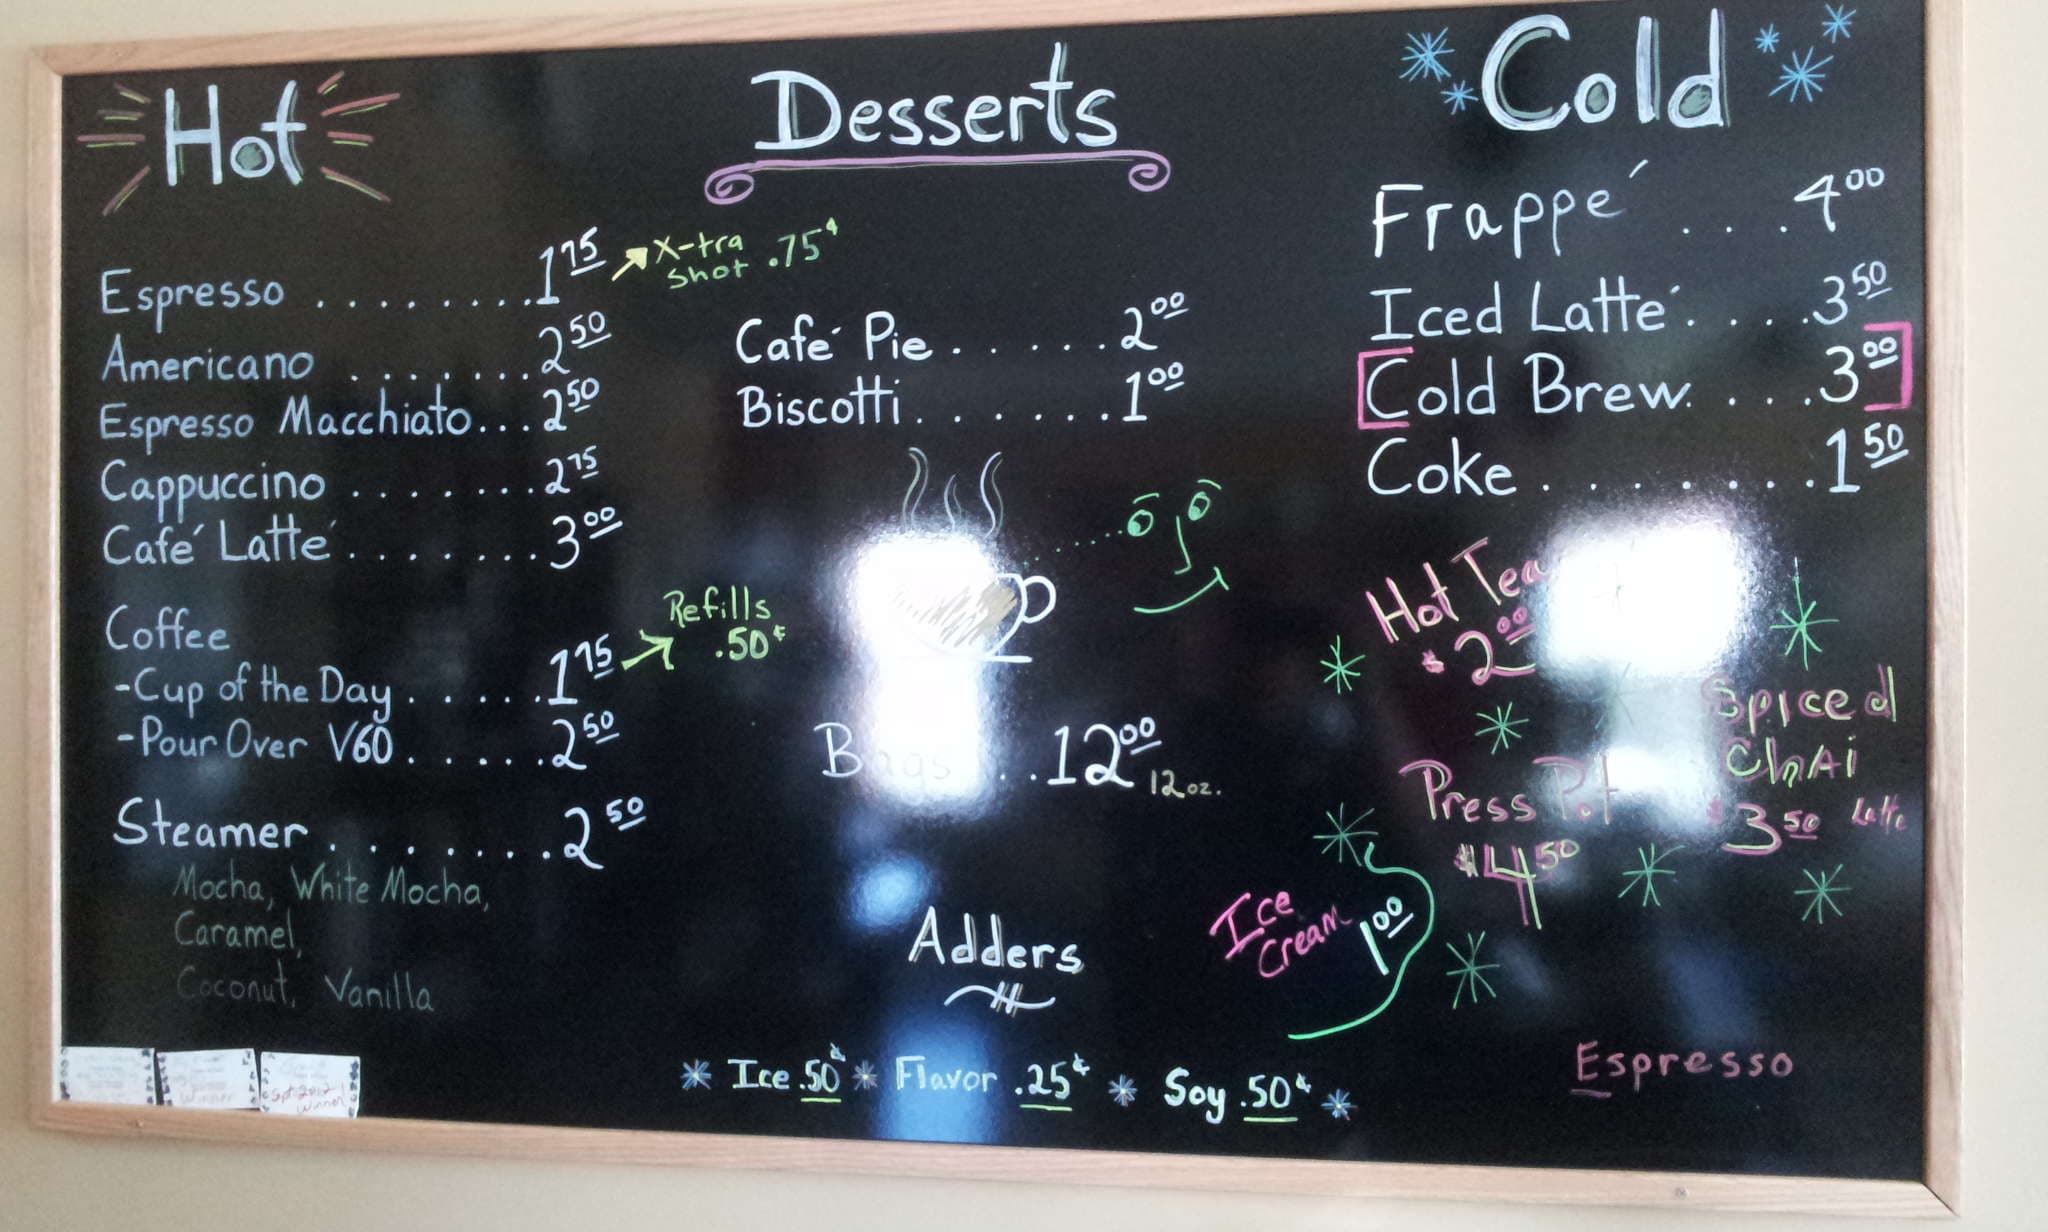 Hot
Espresso ........ 1 75
X-tra
shot .75¢
Americano ....... 2 50
Espresso Macchiato... 2 50
Cappuccino ....... 2 75
Café Latté ....... 3 00
Coffee
-Cup of the Day ...... 1 75
Refills
.50¢
-Pour Over V60 ...... 2 50
Steamer ........ 2 50
Mocha, White Mocha,
Caramel,
Coconut, Vanilla
Winner
Spt. 2012
Winner!
Desserts
Café Pie ...... 2 00
Biscotti ....... 1 00
Bags ... 12 00
12 oz.
Adders
Ice .50¢ Flavor .25¢ Soy .50¢
Cold
Frappé .... 4 00
Iced Latté ..... 3 50
Cold Brew ..... 3 00
Coke ........ 1 50
Hot Tea
$2 00
Spiced
ChAi
$3 50 Latte
Press Pot
$4 50
Ice
Cream 1 00
Espresso